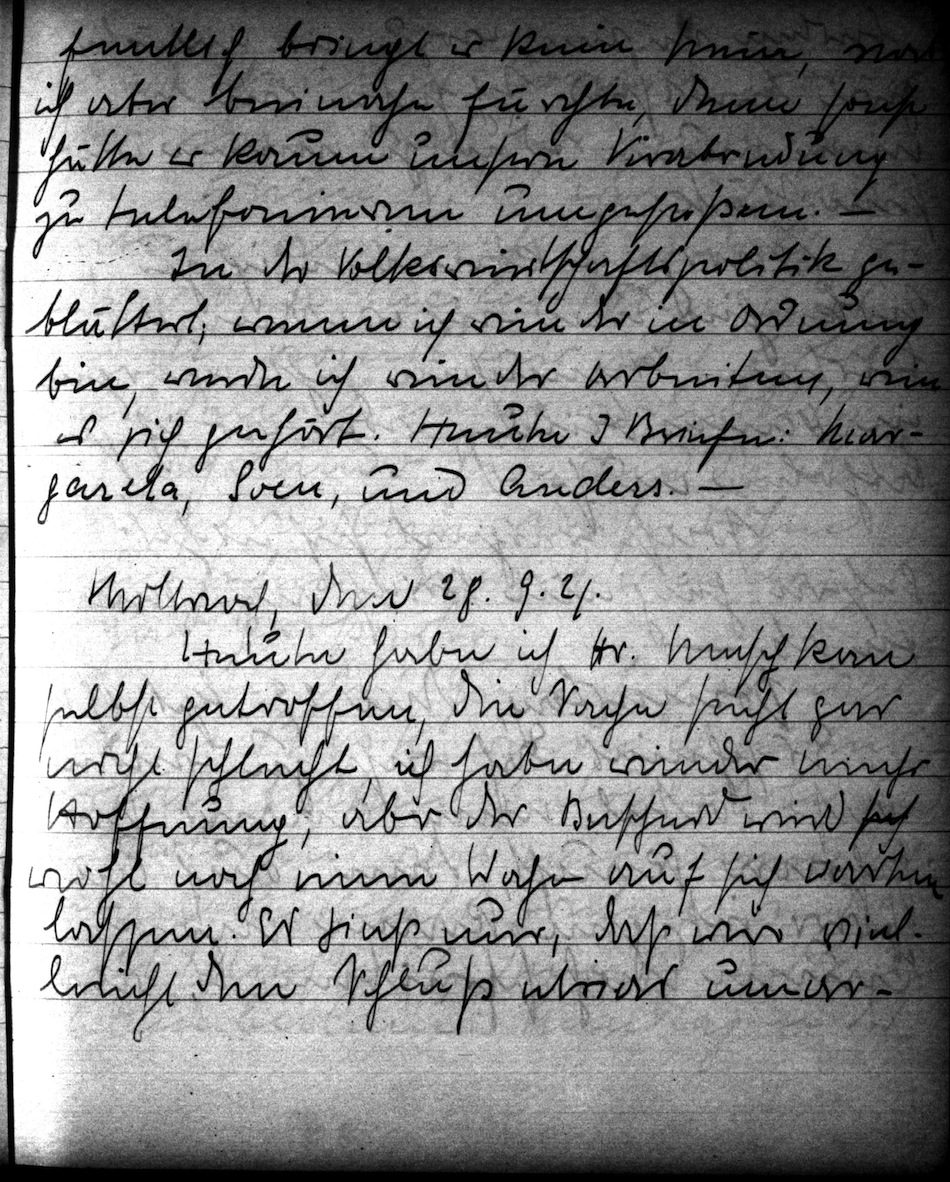 fentlich bringt er kein Nein, was
ich aber beinahe fürchte, denn sonst
hätte er kaum unsere Verabredung
zu telefonieren umgestoßen. —
In der Volkswirtschaftspolitik ge-
blättert, wenn ich wieder in Ordnung
bin, werde ich wieder arbeiten, wie
es sich gehört. Heute 3 Briefe: Mar-
gareta, Sven, und Anders. —
Mittwoch, den 28. 9. 21.
Heute habe ich Hr.
selbst getroffen, die Sache sieht gar
nicht schlecht, ich habe wieder mehr
Hoffnung, aber der Bescheid wird sich
wohl noch eine Woche auf sich warten
lassen. Es hieß nur, daß wir viel-
leicht den Schluß etwas umar-